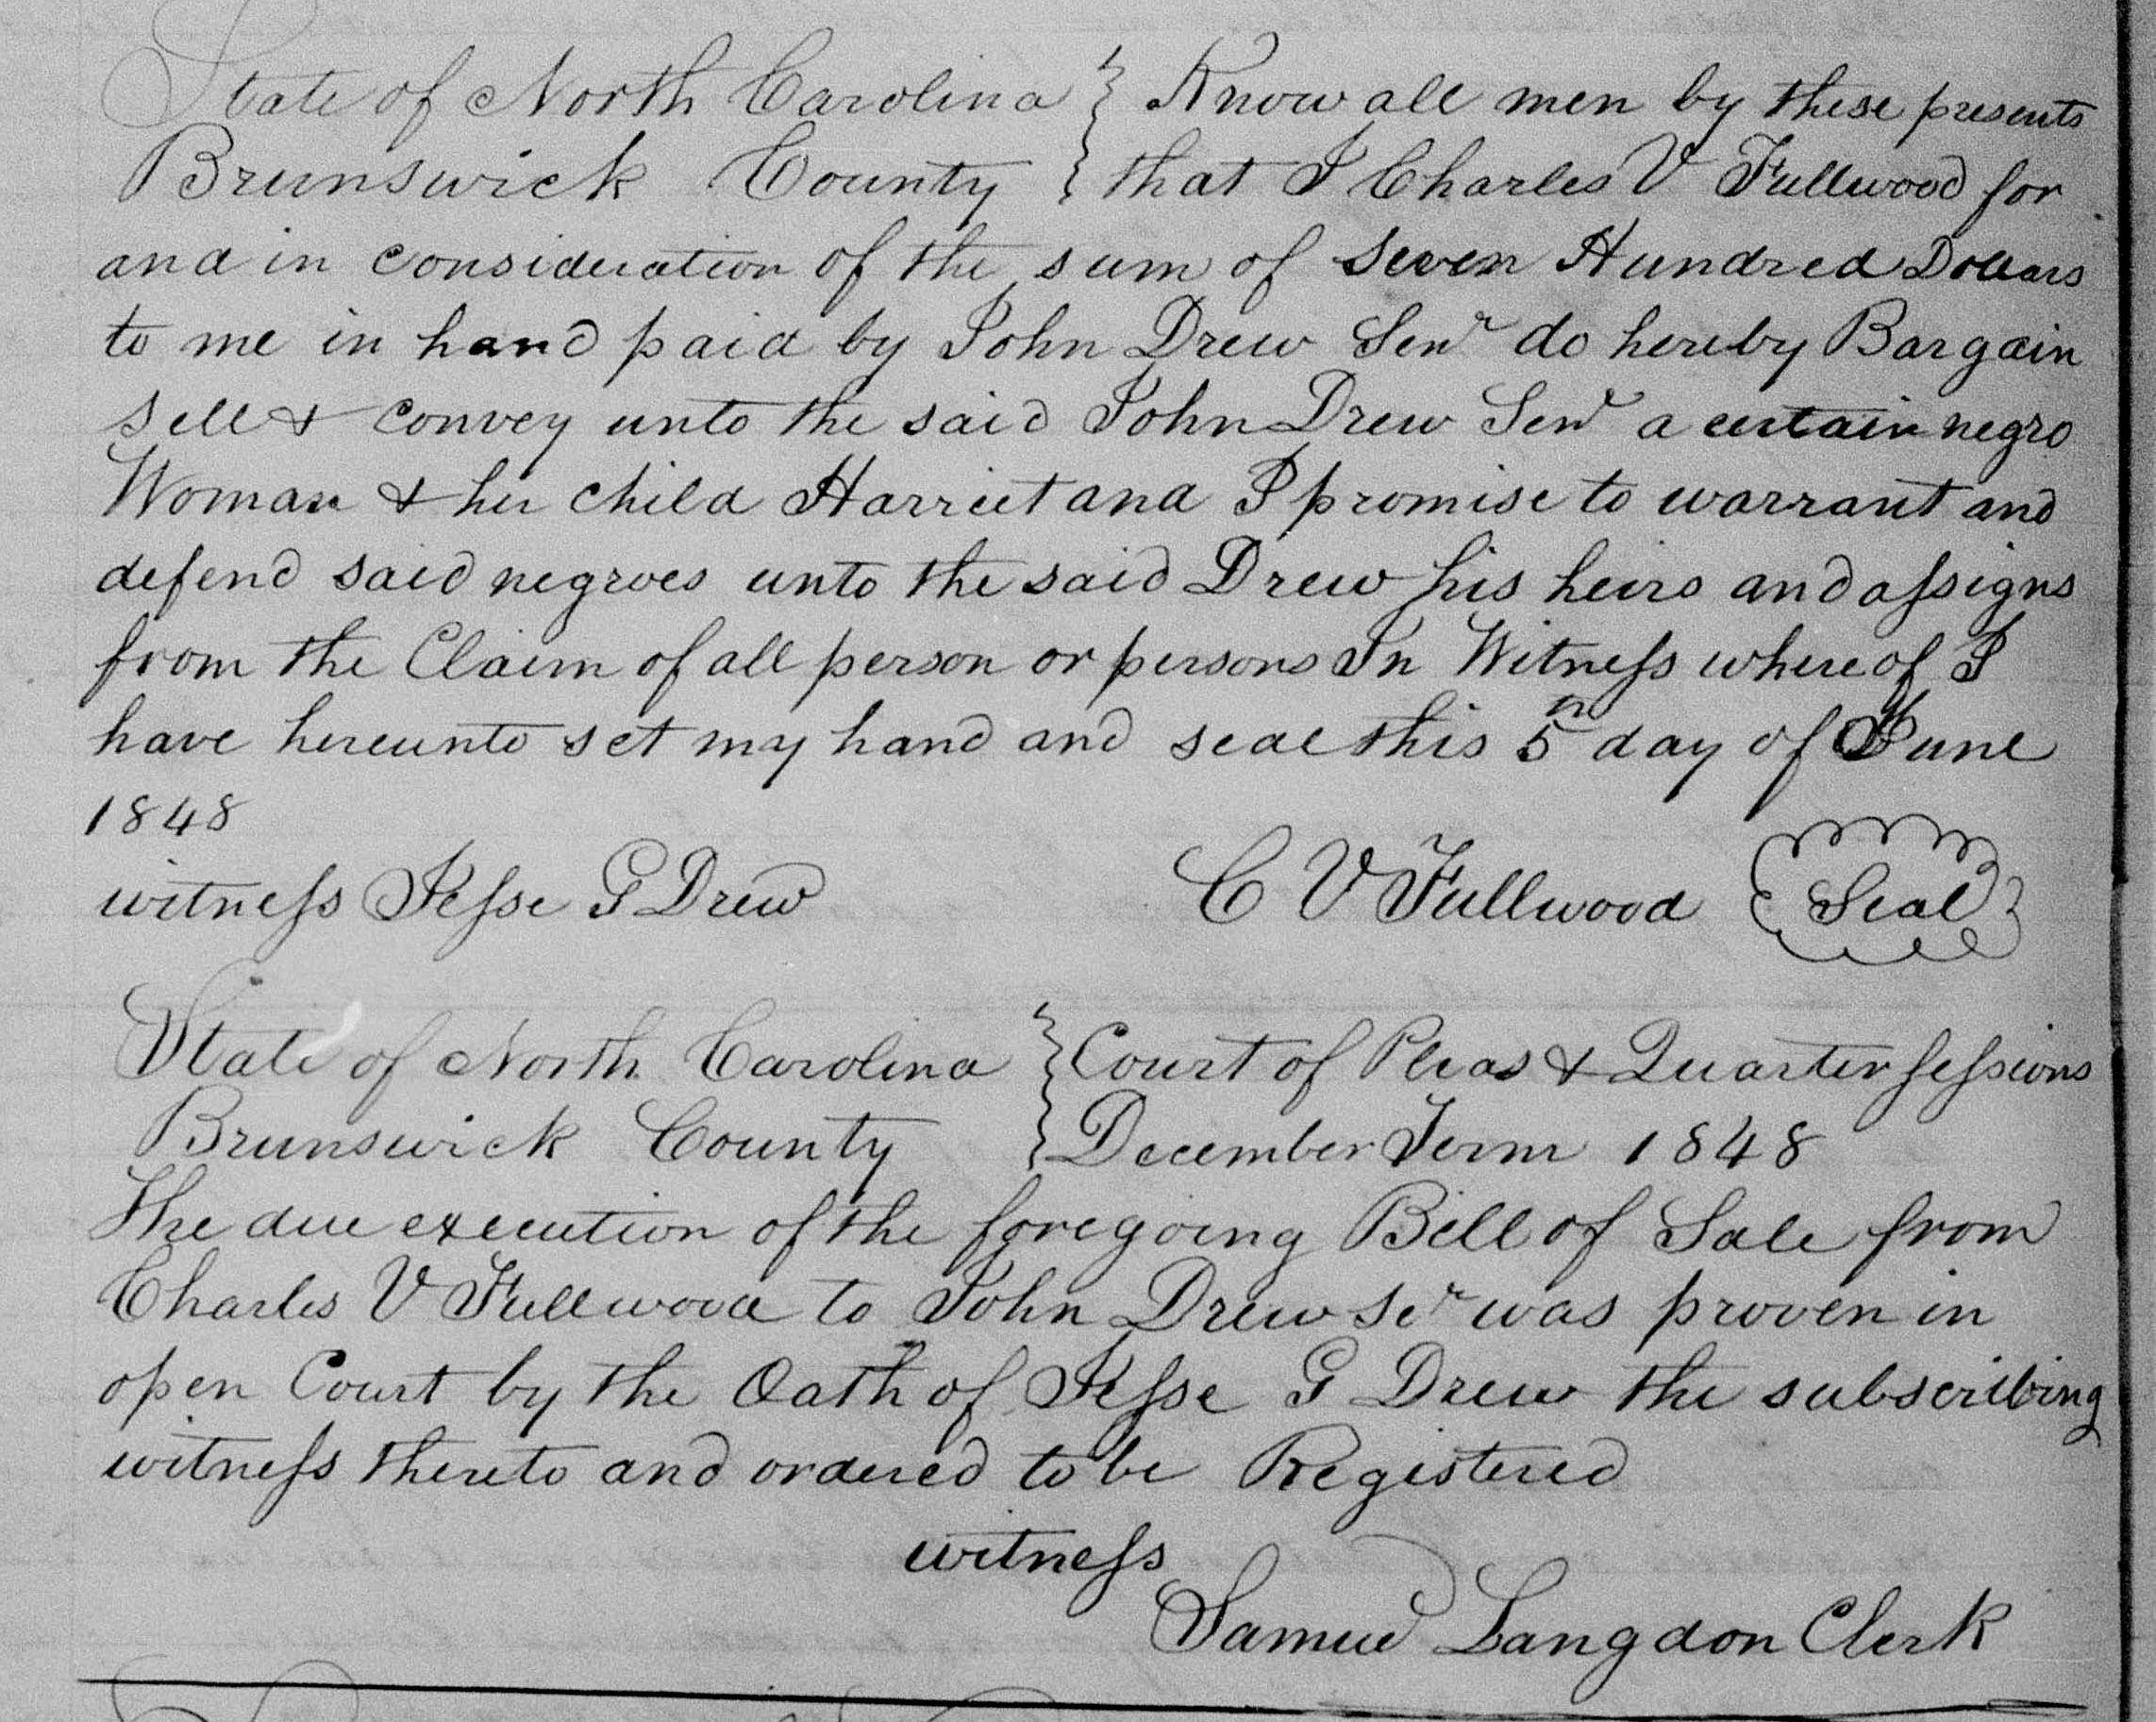 State of North Carolina } Know all men by these presents
Brunswick County } that I Charles V Fullwood for
and in consideration of the sum of Seven Hundred Dollars
to me in hand paid by John Drew Senr do hereby Bargain
Sell & Convey unto the said John Drew Senr a certain negro
Woman & her child Harriet and I promise to warrant and
defend said negroes unto the said Drew his heirs and assigns
from the Claim of all person or persons In Witness where of I
have hereunto set my hand and seal this 5th day of June
1848
witness Jesse G Drew C V Fullwood Seal
State of North Carolina } Court of Pleas & Quarter sessions
Brunswick County } December Term 1848
The due execution of the foregoing Bill of Sale from
Charles V Fullwood to John Drew Sr was proven in
open Court by the Oath of Jesse G Drew the subscribing
witness thereto and ordered to be Registered
witness
Samuel Langdon Clerk